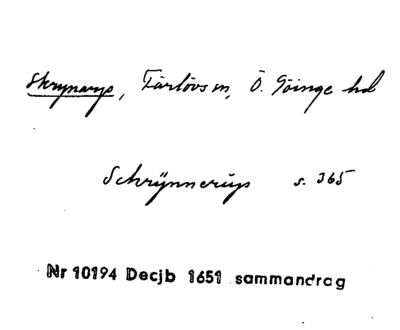 Skrynarp, Färlövs sn, Ö. Göinge hd
Schrÿnnerup s. 365
Nr 10194 Decjb 1651 sammandrag